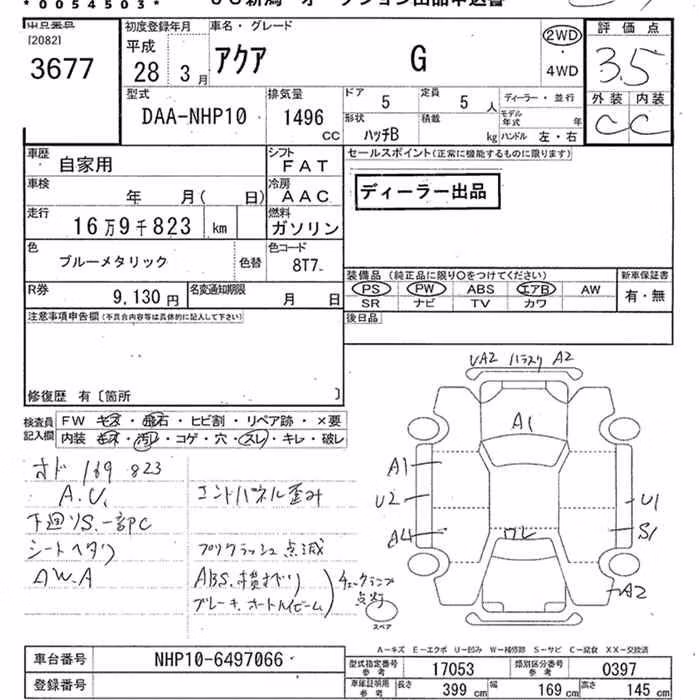 *0054503*
[2082]
3677
初度登録年月
平成
28 3月
車名・グレード
アクア G
2WD
4WD
評価点
3.5
外装 内装
C C
型式
DAA-NHP10
排気量
1496
CC
ドア 5
定員 5 人
ディーラー・並行
形状
ハッチB
積載
kg
モデル年式 年
ハンドル 左・右
車歴
自家用
シフト
FAT
セールスポイント(正常に機能するものに限ります)
ディーラー出品
車検
年 月( 日)
冷房
AAC
走行
16万9千823 km
燃料
ガソリン
色
ブルーメタリック
色替
色コード
8T7
装備品 (純正品に限り○をつけてください)
新車保証書
PS PW ABS エアB AW
SR ナビ TV カワ
有・無
R券
9,130円
名変通知期限
月 日
後日品
注意事項申告欄(不具合内容等は具体的に記入して下さい)
修復歴 有〔箇所 〕
検査員記入欄
FW キズ・飛石・ヒビ割・リペア跡・×要
内装・キズ・汚レ・コゲ・穴・スレ・キレ・破レ
オド 169 823
A.U.
下廻リS.一部PC
シートヘタリ
AW.A
エンドパネル歪み
プリクラッシュ点滅
ABS.横すべり
ブレーキ.オートハイビーム
チェックランプ点灯
UA2 バラスク A2
A1
A1
U2
A4
ワレ
U1
S1
A2
スペア
A-キズ E-エクボ U-凹み W-補修跡 S-サビ C-腐食 XX-交換済
車台番号
NHP10-6497066
登録番号
型式指定番号
参考
17053
類別区分番号
参考
0397
車庫証明用
参考
長さ
399 cm
幅
169 cm
高さ
145 cm